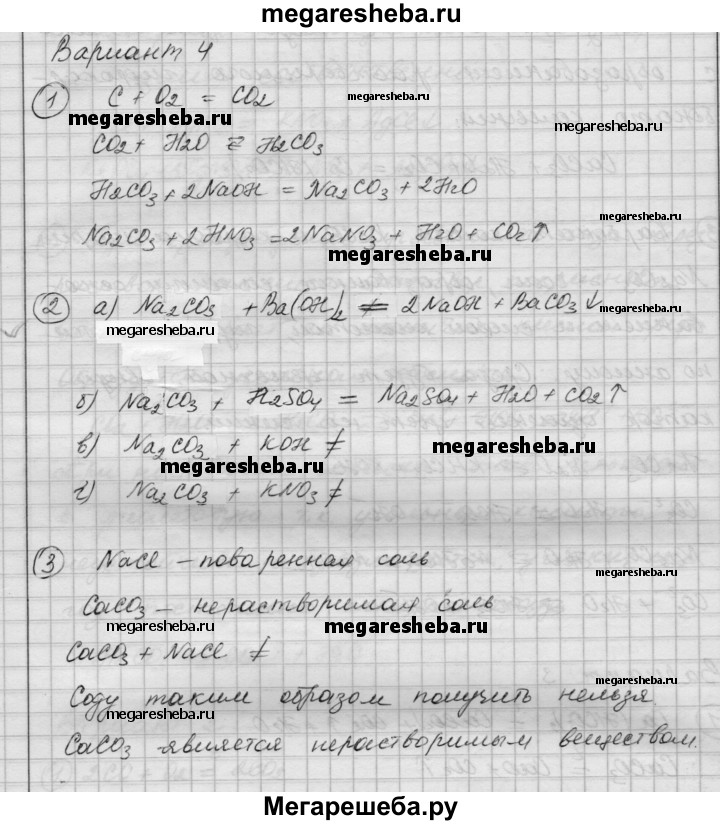 megaresheba.ru
Вариант 4
① C + O2 = CO2
megaresheba.ru
megaresheba.ru
megaresheba.ru
CO2 + H2O ⇄ H2CO3
H2CO3 + 2NaOH = Na2CO3 + 2H2O
megaresheba.ru
Na2CO3 + 2HNO3 = 2NaNO3 + H2O + CO2↑
megaresheba.ru
② а) Na2CO3 + Ba(OH)2 ≠ 2NaOH + BaCO3↓
megaresheba.ru
megaresheba.ru
б) Na2CO3 + H2SO4 = Na2SO4 + H2O + CO2↑
в) Na2CO3 + KOH ≠
megaresheba.ru
megaresheba.ru
г) Na2CO3 + KNO3 ≠
③ NaCl – поваренная соль
megaresheba.ru
CaCO3 – нерастворимая соль
megaresheba.ru
megaresheba.ru
CaCO3 + NaCl ≠
Соду таким образом получить нельзя
megaresheba.ru
megaresheba.ru
CaCO3 - является нерастворимым веществом.
Мегарешеба.ру